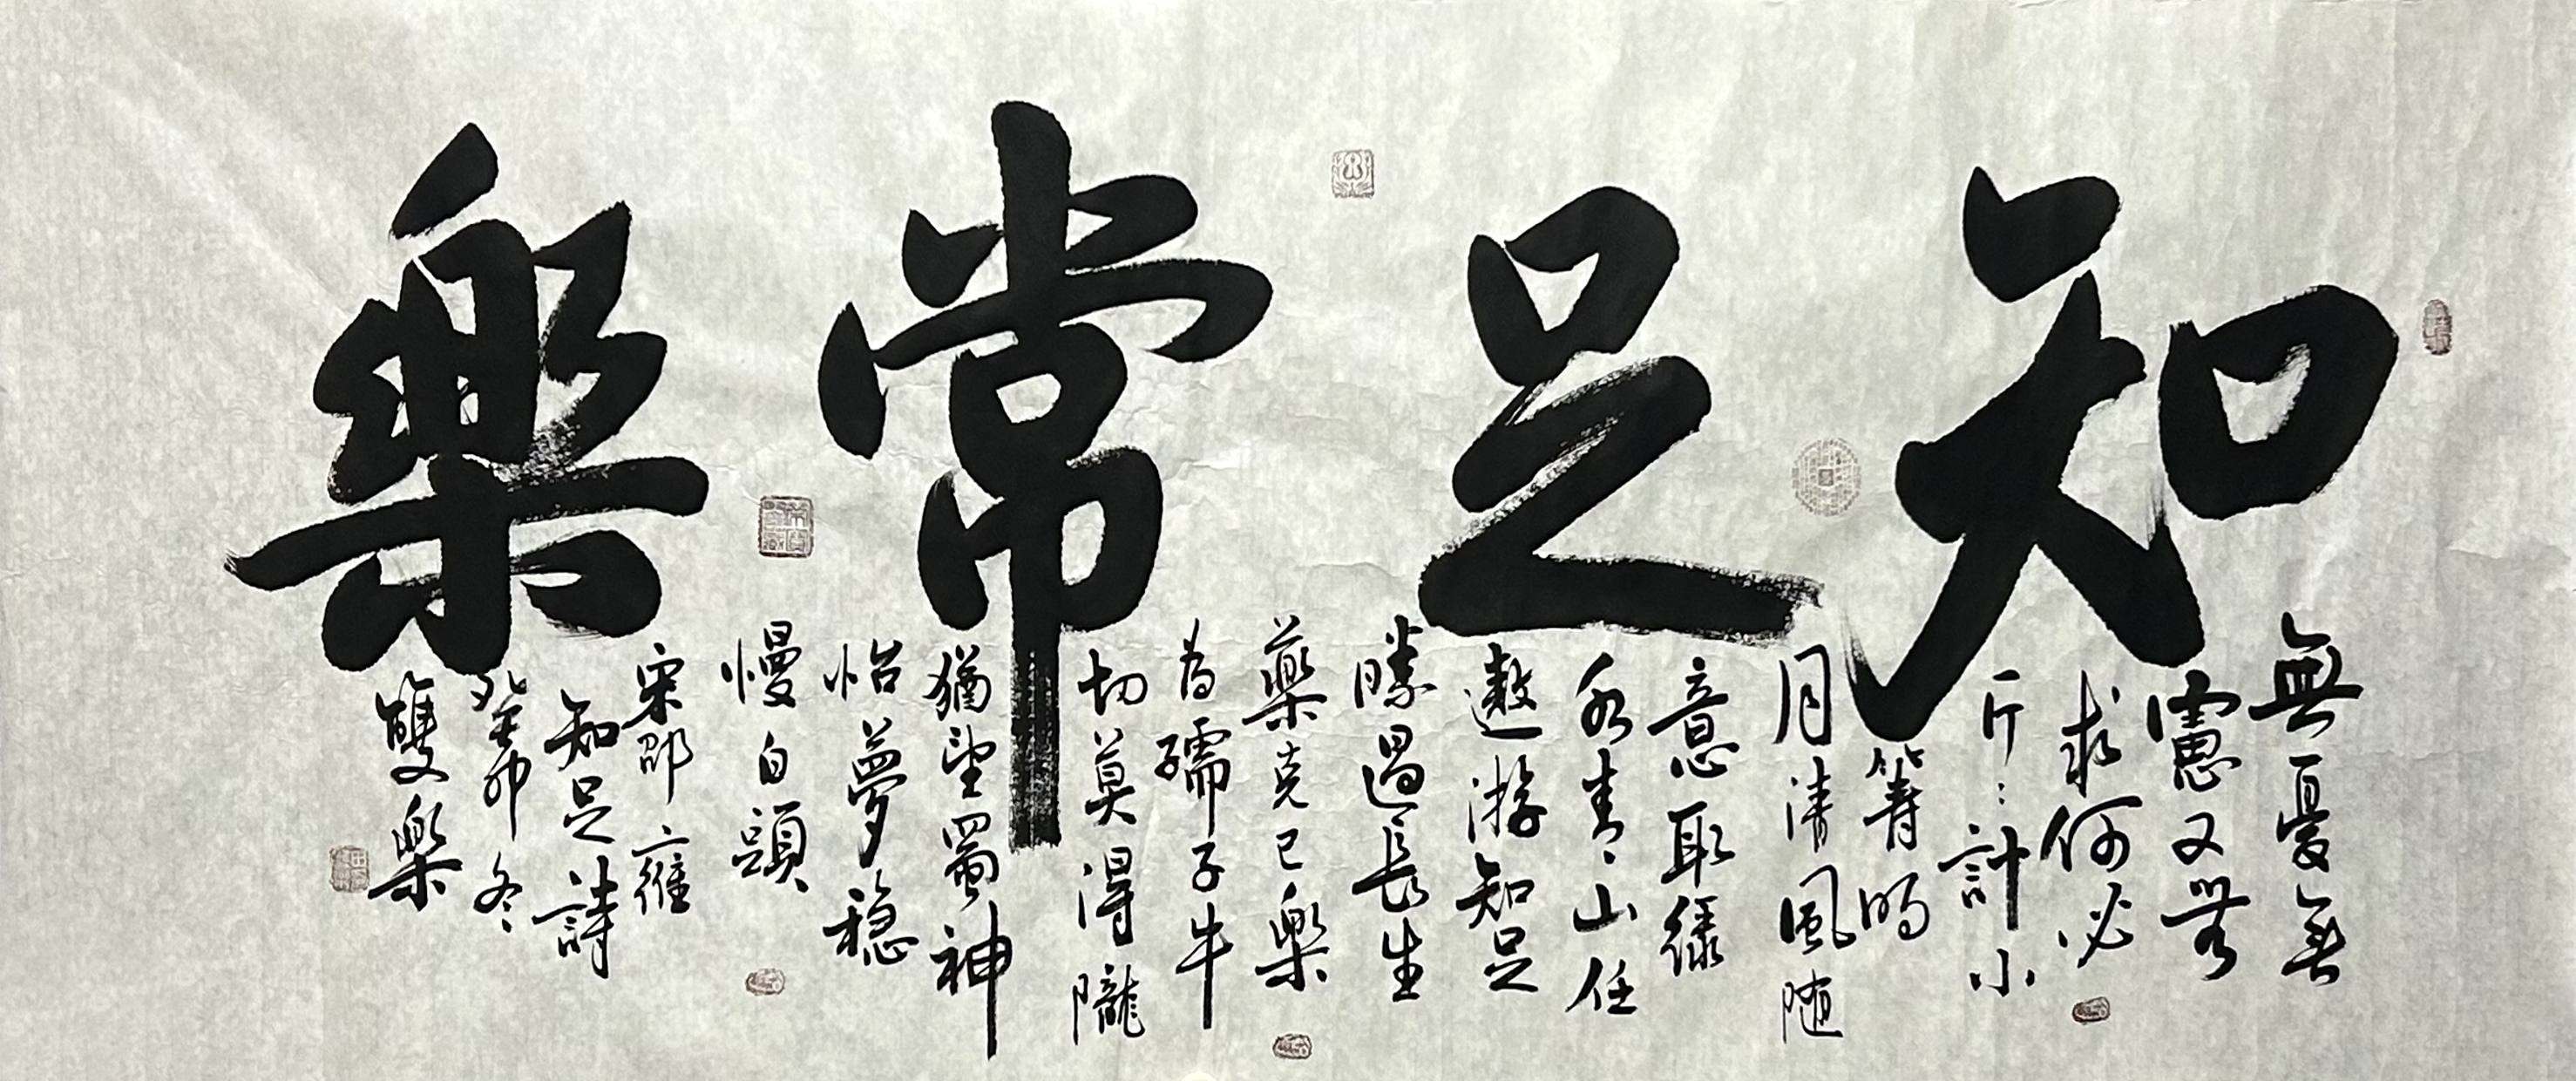 知足常樂
無憂無
慮又無
求何必
斤:計小
籌明
月清風随
意取綠
水青、山任
遨游知足
勝過長生
藥克己樂
為孺子牛
切莫得隴
猶望蜀神
怡夢穩
慢白頭
宋邵雍
知足詩
癸卯冬
雙樂